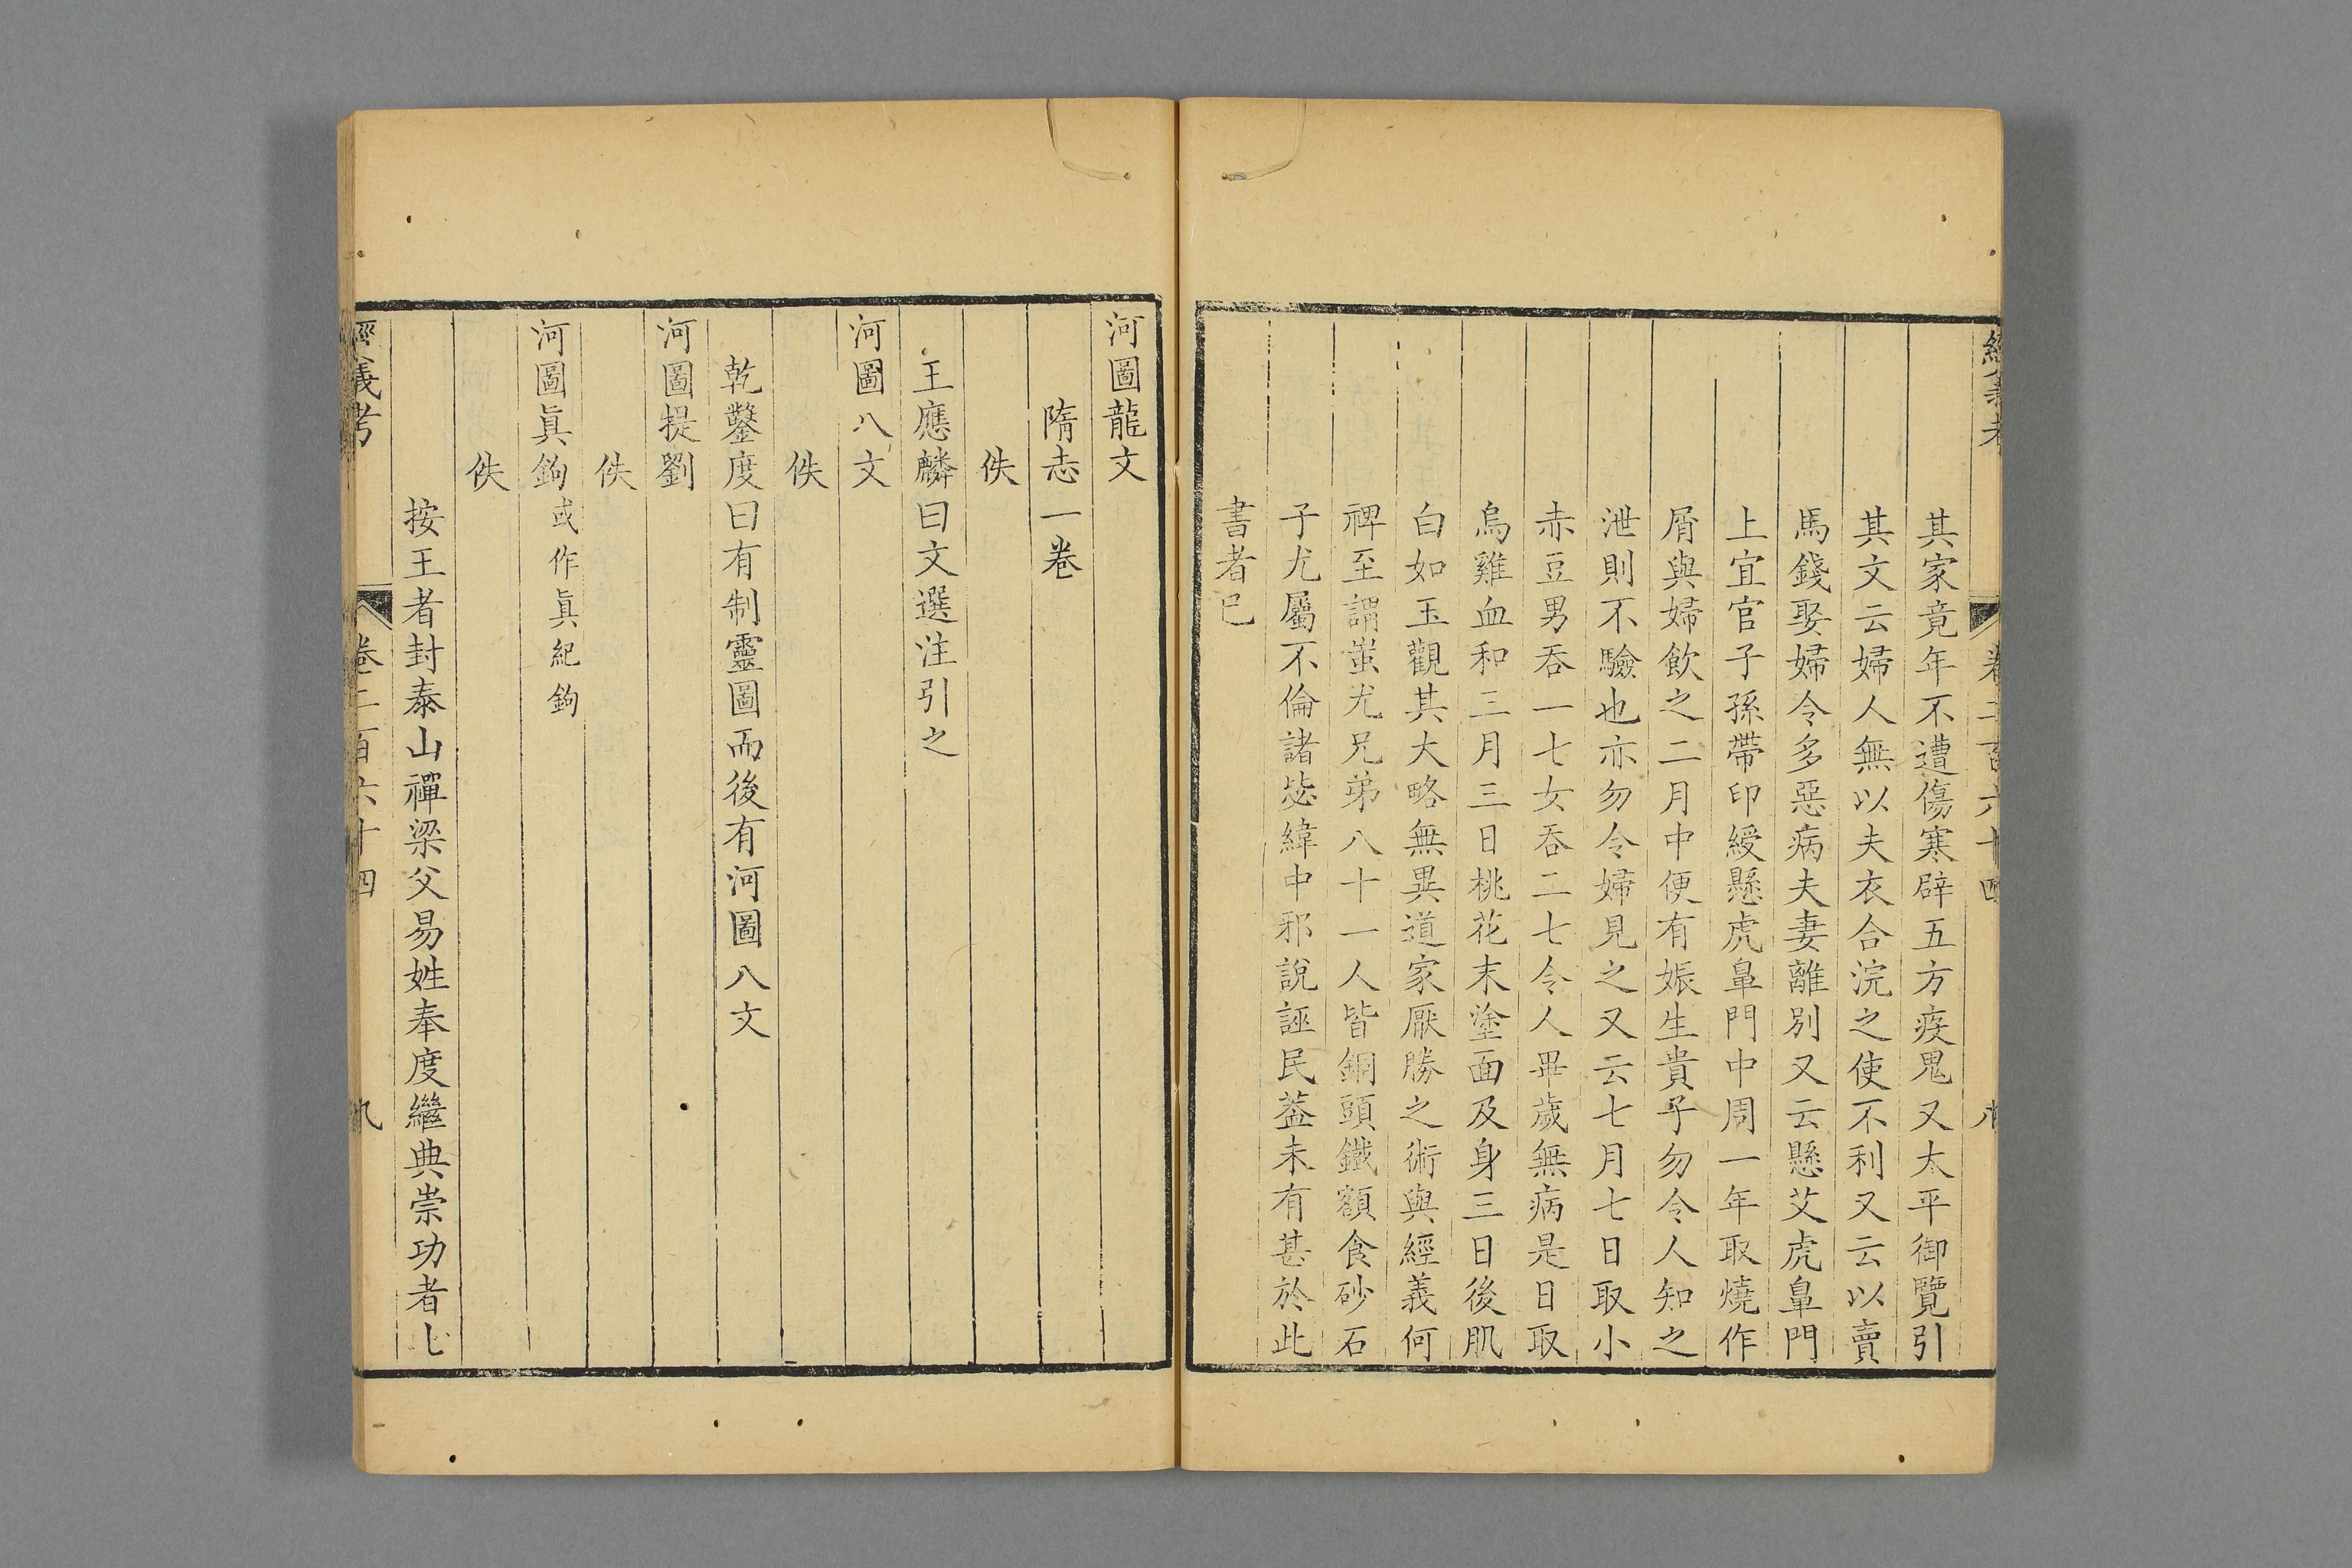 經義考 卷二百六十四 八
其家竟年不遭傷寒辟五方疫鬼又太平御覽引
其文云婦人無以夫衣合浣之使不利又云以賣
馬錢娶婦令多惡病夫妻離別又云懸艾虎鼻門
上宜官子孫帶印綬懸虎鼻門中周一年取燒作
屑與婦飲之二月中便有娠生貴子勿令人知之
泄則不驗也亦勿令婦見之又云七月七日取小
赤豆男吞一七女吞二七令人畢歲無病是日取
烏雞血和三月三日桃花末塗面及身三日後肌
白如玉觀其大略無異道家厭勝之術與經義何
裨至謂蚩尤兄弟八十一人皆銅頭鐵額食砂石
子尤屬不倫諸毖緯中邪說誣民葢未有甚於此
書者已
河圖龍文
隋志一卷
佚
王應麟曰文選注引之
河圖八文
佚
乾鑿度曰有制靈圖而後有河圖八文
河圖提劉
佚
河圖眞鉤或作眞紀鉤
佚
按王者封泰山禪梁父易姓奉度繼典崇功者七
經義考 卷二百六十四 九